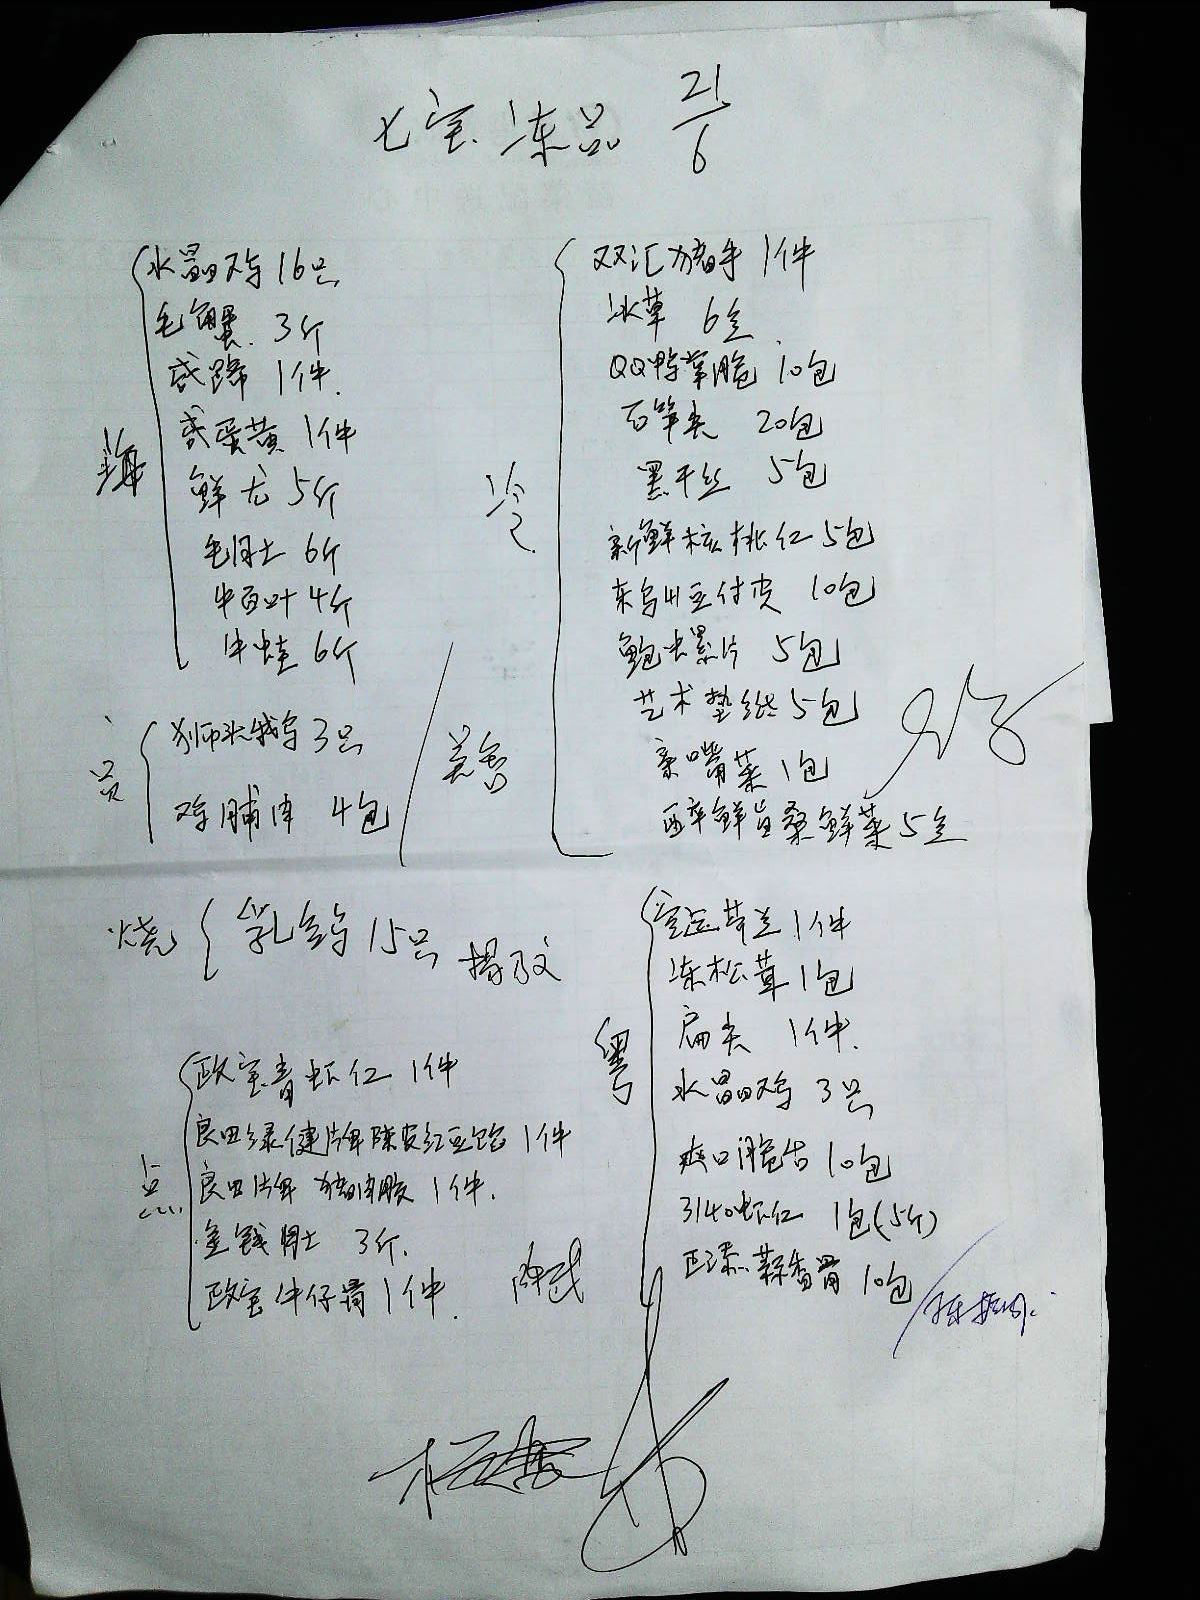 七宝冻品 21/6
海
水晶鸡 16只
毛蟹 3斤
咸蹄 1件
咸蛋黄 1件
鲜尤 5斤
毛月土 6斤
牛百叶 4斤
牛蛙 6斤
狮头鹅 3只
鸡脯肉 4包
烧
乳鸽 15只
点
政宝青虾仁 1件
良田绿健牌陈皮红豆馅 1件
良田牌 猪肉胶 1件
金钱月土 3斤
政宝牛仔骨 1件
冷
双汇猪手 1件
冰草 6仝
QQ鸭掌脆 10包
石笋尖 20包
黑干丝 5包
新鲜核桃仁 5包
东乌州豆付皮 10包
鲍鱼螺片 5包
艺术垫纸 5包
亲嘴菜 1包
醉鲜皇桑鲜菜 5仝
粤
空运芥兰 1件
冻松茸 1包
扁尖 1件
水晶鸡 3只
爽口脆古 10包
3140虾仁 1包(5斤)
蒜香骨 10包